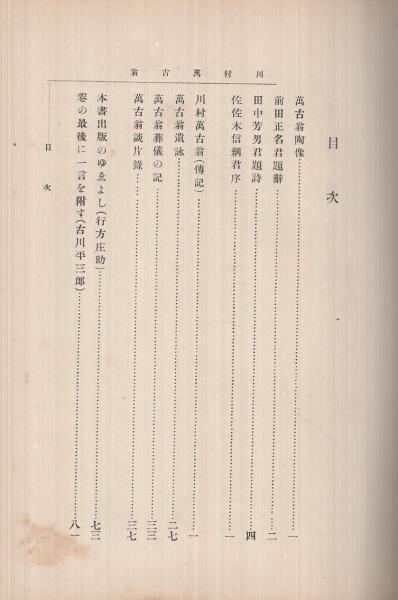 川村萬古翁
目次
萬古翁陶像……一
前田正名君題辭……二
田中芳男君題詩……四
佐佐木信綱君序……一
川村萬古翁(傳記)……一
萬古翁遺詠……二七
萬古翁葬儀の記……三三
萬古翁談片錄……三七
本書出版のゆゑよし(行方庄助)……七三
卷の最後に一言を附す(古川平三郎)……八一
目次